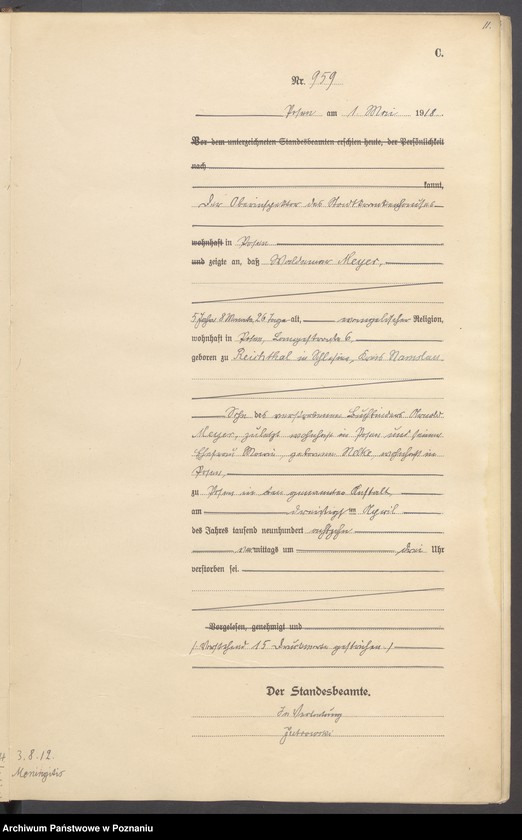 11.
C.
Nr. 959
Posen am 1. Mai 1918.
Vor dem unterzeichneten Standesbeamten erschien heute, der Persönlichkeit
nach
kannt,
Der Oberinspektor des Stadtkrankenhauses
wohnhaft in Posen
und zeigte an, daß Woldemar Meyer,
5 Jahre 8 Monate 26 Tage alt, evangelischer Religion,
wohnhaft in Posen, Langestraße 6,
geboren zu Reichthal in Schlesien, Kreis Namslau
Sohn des verstorbenen Buchbinders Arnold
Meyer, zuletzt wohnhaft in Posen und seiner
Ehefrau Maria, geborene Nolke, wohnhaft in
Posen,
zu Posen in der genannten Anstalt,
am dreißigsten April
des Jahres tausend neunhundert achtzehn
mittags um drei Uhr
verstorben sei.
Vorgelesen, genehmigt und
/: Vorstehend 15 Druckworte gestrichen :/
Der Standesbeamte.
In Vertretung
3.8.12.
Meningitis
Archiwum Państwowe w Poznaniu